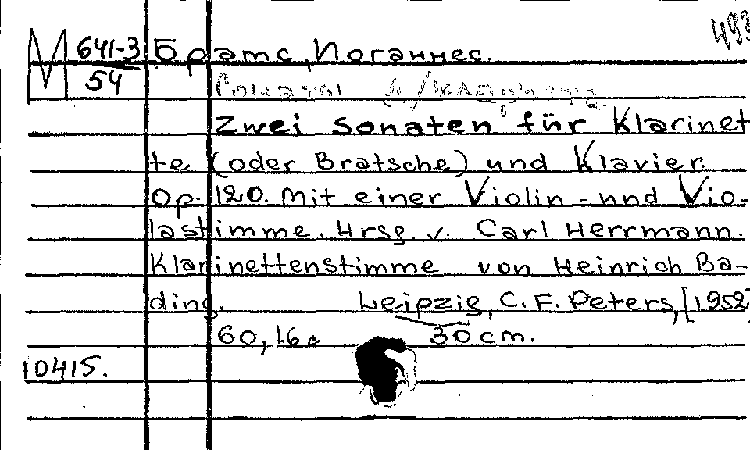 493
М 641-3 Брамс, Иоганнес.
54
Zwei Sonaten für Klarinet
te (oder Bratsche) und Klavier.
Op. 120. Mit einer Violin- und Vio-
lastimme. Hrsg. v. Carl Herrmann.
Klarinettenstimme von Heinrich Ba-
ding. Leipzig, C. F. Peters, [1952]
60, 16 s 30 cm.
10415.